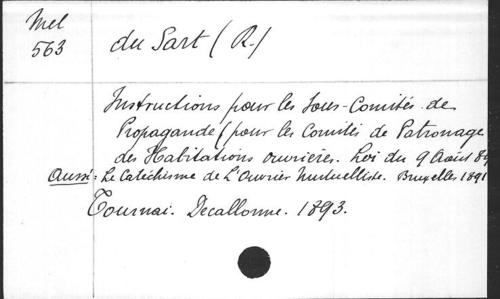 Mel
563
du Sart (R.)
Instructions pour les Sous-Comités de
Propagande (pour les Comités de Patronage
des Habitations ouvrières. Loi du 9 Août 89
Aussi: Le Catéchisme de L'Ouvrier Mutuelliste. Bruxelles 1891
Tournai. Decallonne. 1893.